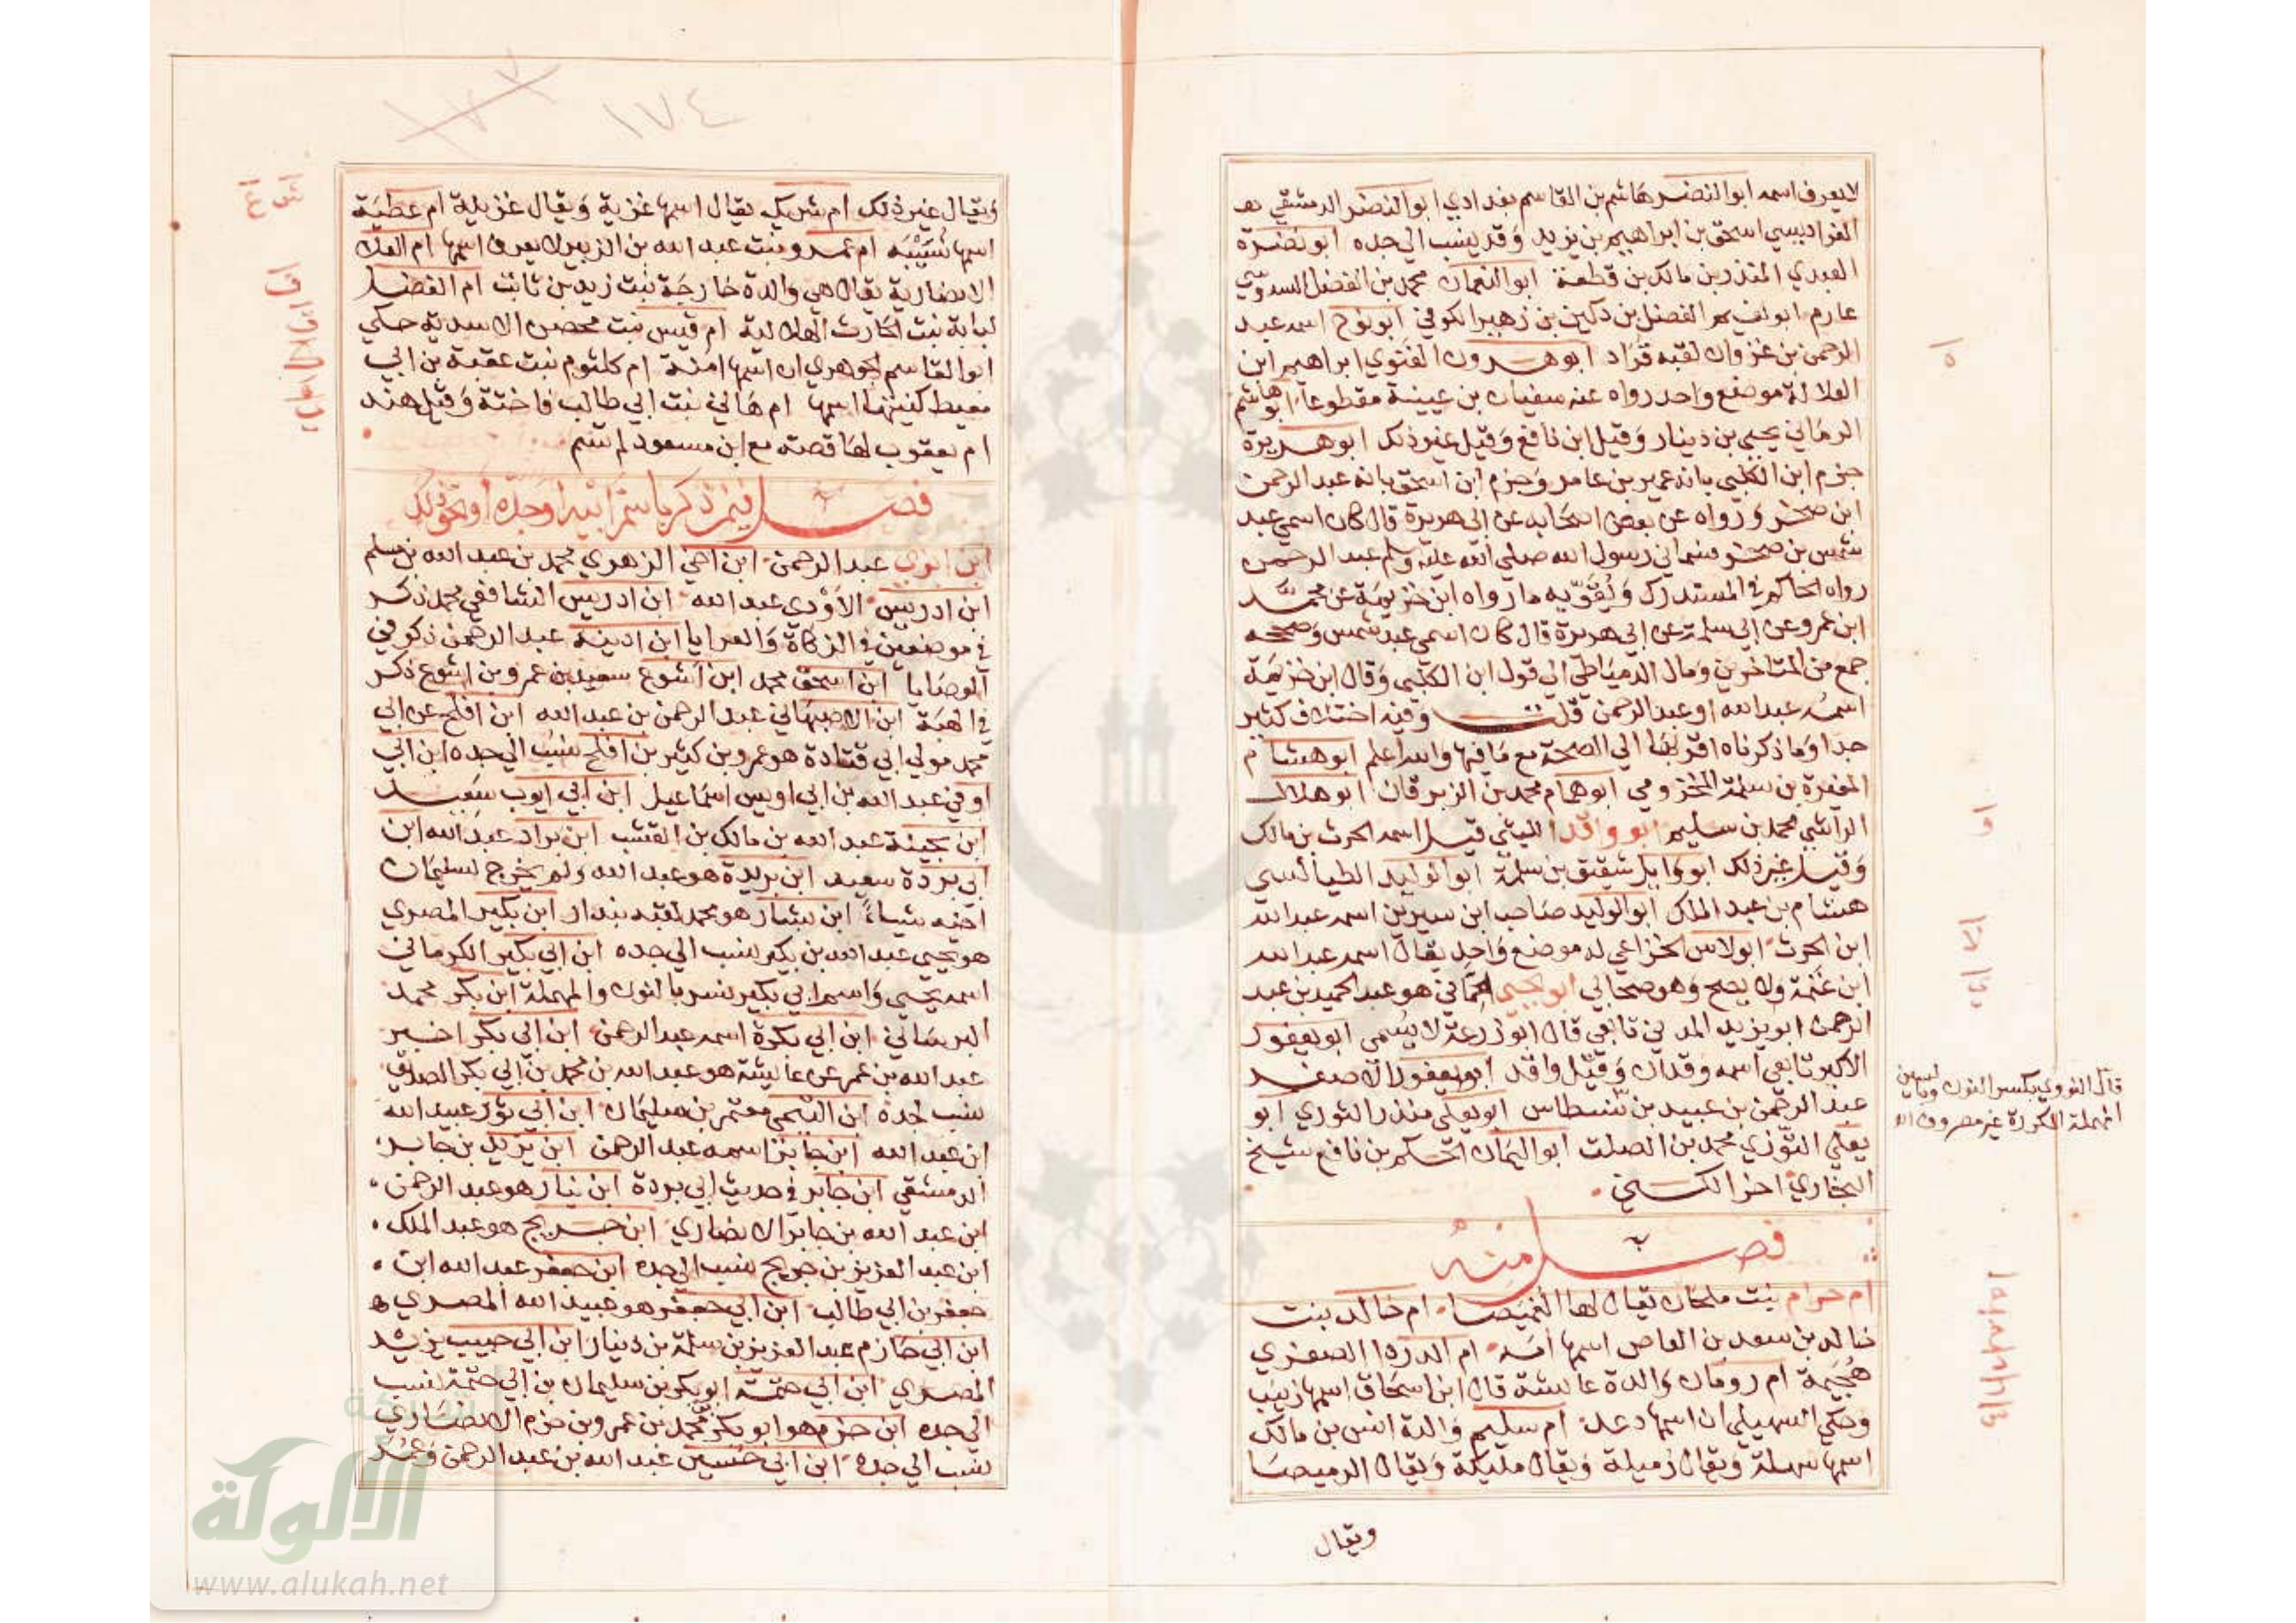 لا يعرف اسمه ابو النضر هاشم بن القاسم بغدادي ابو النضر الدمشقي هو
الفراديسي اسحق بن ابراهيم بن يزيد وقد ينسب الي جده ابو نضرة
العبدي المنذر بن مالك بن قطعة ابو النعمان محمد بن الفضل السدوسي
عارم ابو نعيم الفضل بن دكين بن زهير الكوفي ابو نوح اسمه عبد
الرحمن بن غزوان لقبه قراد ابو هرون الغنوي ابراهيم ابن
العلا له موضع واحد رواه عنه سفيان بن عيينة مقطوعا ابو هاشم
الرماني يحيي بن دينار وقيل ابن نافع وقيل غير ذلك ابو هريرة
جزم ابن الكلبي بانه عمير بن عامر وجزم ابن اسحق بانه عبد الرحمن
ابن صخر ورواه عن بعض اصحابه عن ابي هريرة قال كان اسمي عبد
شمس بن صخر فسماني رسول الله صلي الله عليه وسلم عبد الرحمن
رواه الحاكم في المستدرك ويقويه ما رواه ابن خزيمة عن محمد
ابن عمرو عن ابي سلمة عن ابي هريرة قال كان اسمي عبد شمس وصححه
جمع من المتاخرين ومال الدمياطي الي قول ابن الكلبي وقال ابن خزيمة
اسمه عبد الله او عبد الرحمن قلت وفيه اختلاف كثير
جدا وما ذكرناه اقربها الي الصحة مع ما فيها والله اعلم ابو هشام
المغيرة بن سلمة المخزومي ابو همام محمد بن الزبرقان ابو هلال
الراسبي محمد بن سليم ابو واقد الليثي قيل اسمه الحرث بن مالك
وقيل غير ذلك ابو وايل شقيق بن سلمة ابو الوليد الطيالسي
هشام بن عبد الملك ابو الوليد صاحب ابن سيرين اسمه عبد الله
ابن الحرث ابو لاس الخزاعي له موضع واحد يقال اسمه عبد الله
ابن غنمة ولا يصح وهو صحابي ابو يحيي الحماني هو عبد الحميد بن عبد
الرحمن ابو يزيد المدني تابعي قال ابو زرعة لا يسمي ابو يعفور
الاكبر تابعي اسمه وقدان وقيل واقد ابو يعفور الاصغر
عبد الرحمن بن عبيد بن نسطاس ابو يعلي منذر الثوري ابو
يعلي التوزي محمد بن الصلت ابو اليمان الحكم بن نافع شيخ
البخاري اخر الكني
فصل منه
ام حرام بنت ملحان يقال لها الغميصا ام خالد بنت
خالد بن سعد بن العاص اسمها امة ام الدردا الصغري
هجيمة ام رومان والدة عايشة قال ابن اسحاق اسمها زينب
وحكي السهيلي ان اسمها دعد ام سليم والدة انس بن مالك
اسمها سهلة ويقال رميلة ويقال مليكة ويقال الرميصا
ويقال
قال النووي بكسر النون وبالسين
المهملة المكررة غير مصروف
١٧٤
ويقال غير ذلك ام شريك يقال اسمها غزية ويقال غزيلة ام عطية
اسمها نسيبه ام عمرو بنت عبد الله بن الزبير لا يعرف اسمها ام العلا
الانصارية يقال هي والدة خارجة بنت زيد بن ثابت ام الفضل
لبابة بنت الحارث الهلالية ام قيس بنت محصن الاسدية حكي
ابو القاسم الجوهري ان اسمها امنة ام كلثوم بنت عقبة بن ابي
معيط كنيتها اسمها ام هاني بنت ابي طالب فاختة وقيل هند
ام يعقوب لها قصة مع ابن مسعود لم تسم
فصل فيمن ذكر باسم ابيه او جده او نحو ذلك
ابن ابزي عبد الرحمن ابن اخي الزهري محمد بن عبد الله بن مسلم
ابن ادريس الاودي عبد الله ابن ادريس الشافعي محمد ذكر
في موضعين في الزكاة والعرايا ابن اذينة عبد الرحمن ذكر في
الوصايا ابن اسحق محمد ابن اشوع سعيد بن عمرو بن اشوع ذكر
في الهبة ابن الاصبهاني عبد الرحمن بن عبد الله ابن افلح عن ابي
محمد مولي ابي قتادة هو عمرو بن كثير بن افلح ينسب الي جده ابن ابي
اوفي عبد الله بن ابي اويس اسماعيل ابن ابي ايوب سعيد
ابن بحينة عبد الله بن مالك بن القشب ابن براد عبد الله ابن
ابي بردة سعيد ابن بريدة هو عبد الله ولم يخرج لسليمان
اخيه شياء ابن بشار هو محمد لقبه بندار ابن بكير المصري
هو يحيي عبد الله بن بكير ينسب الي جده ابن ابي بكير الكرماني
اسمه يحيي واسم ابي بكير نسر بالنون والمهملة ابن بكر محمد
البرساني ابن ابي بكرة اسمه عبد الرحمن ابن ابي بكر اخبر
عبد الله بن عمر عن عايشة هو عبد الله بن محمد بن ابي بكر الصديق
ينسب لجده ابن التيمي معتمر بن سليمان ابن ابي ثور عبيد الله
ابن عبد الله ابن جابر اسمه عبد الرحمن ابن يزيد بن جابر
الدمشقي ابن جابر في حديث ابي بردة ابن نيار هو عبد الرحمن
ابن عبد الله بن جابر الانصاري ابن جريج هو عبد الملك
ابن عبد العزيز بن جريج ينسب الي جده ابن جعفر عبد الله ابن
جعفر بن ابي طالب ابن ابي جعفر هو عبيد الله المصري
ابن ابي حازم عبد العزيز بن سلمة بن دينار ابن ابي حبيب يزيد
المصري ابن ابي حثمة ابو بكر بن سليمان بن ابي حثمة ينسب
الي جده ابن حزم هو ابو بكر محمد بن عمرو بن حزم الانصاري
ينسب الي جده ابن ابي حسين عبد الله بن عبد الرحمن وعمر
الألوكة
www.alukah.net